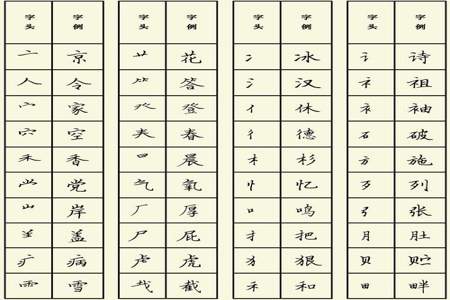 字头 字例 字头 字例 字头 字例 字头 字例
亠 京 艹 花 冫 冰 讠 诗
人 令 ⺮ 答 氵 汉 礻 祖
宀 家 癶 登 亻 休 衤 袖
穴 空 𡗗 春 彳 德 石 破
禾 香 曰 晨 木 杉 方 施
𫩠 党 气 氧 忄 忆 歹 列
山 岸 厂 厚 口 鸣 弓 张
𦍌 盖 尸 屁 扌 把 月 肚
疒 病 虍 虎 犭 狠 贝 贮
雨 雪 𢦏 截 禾 和 田 畔